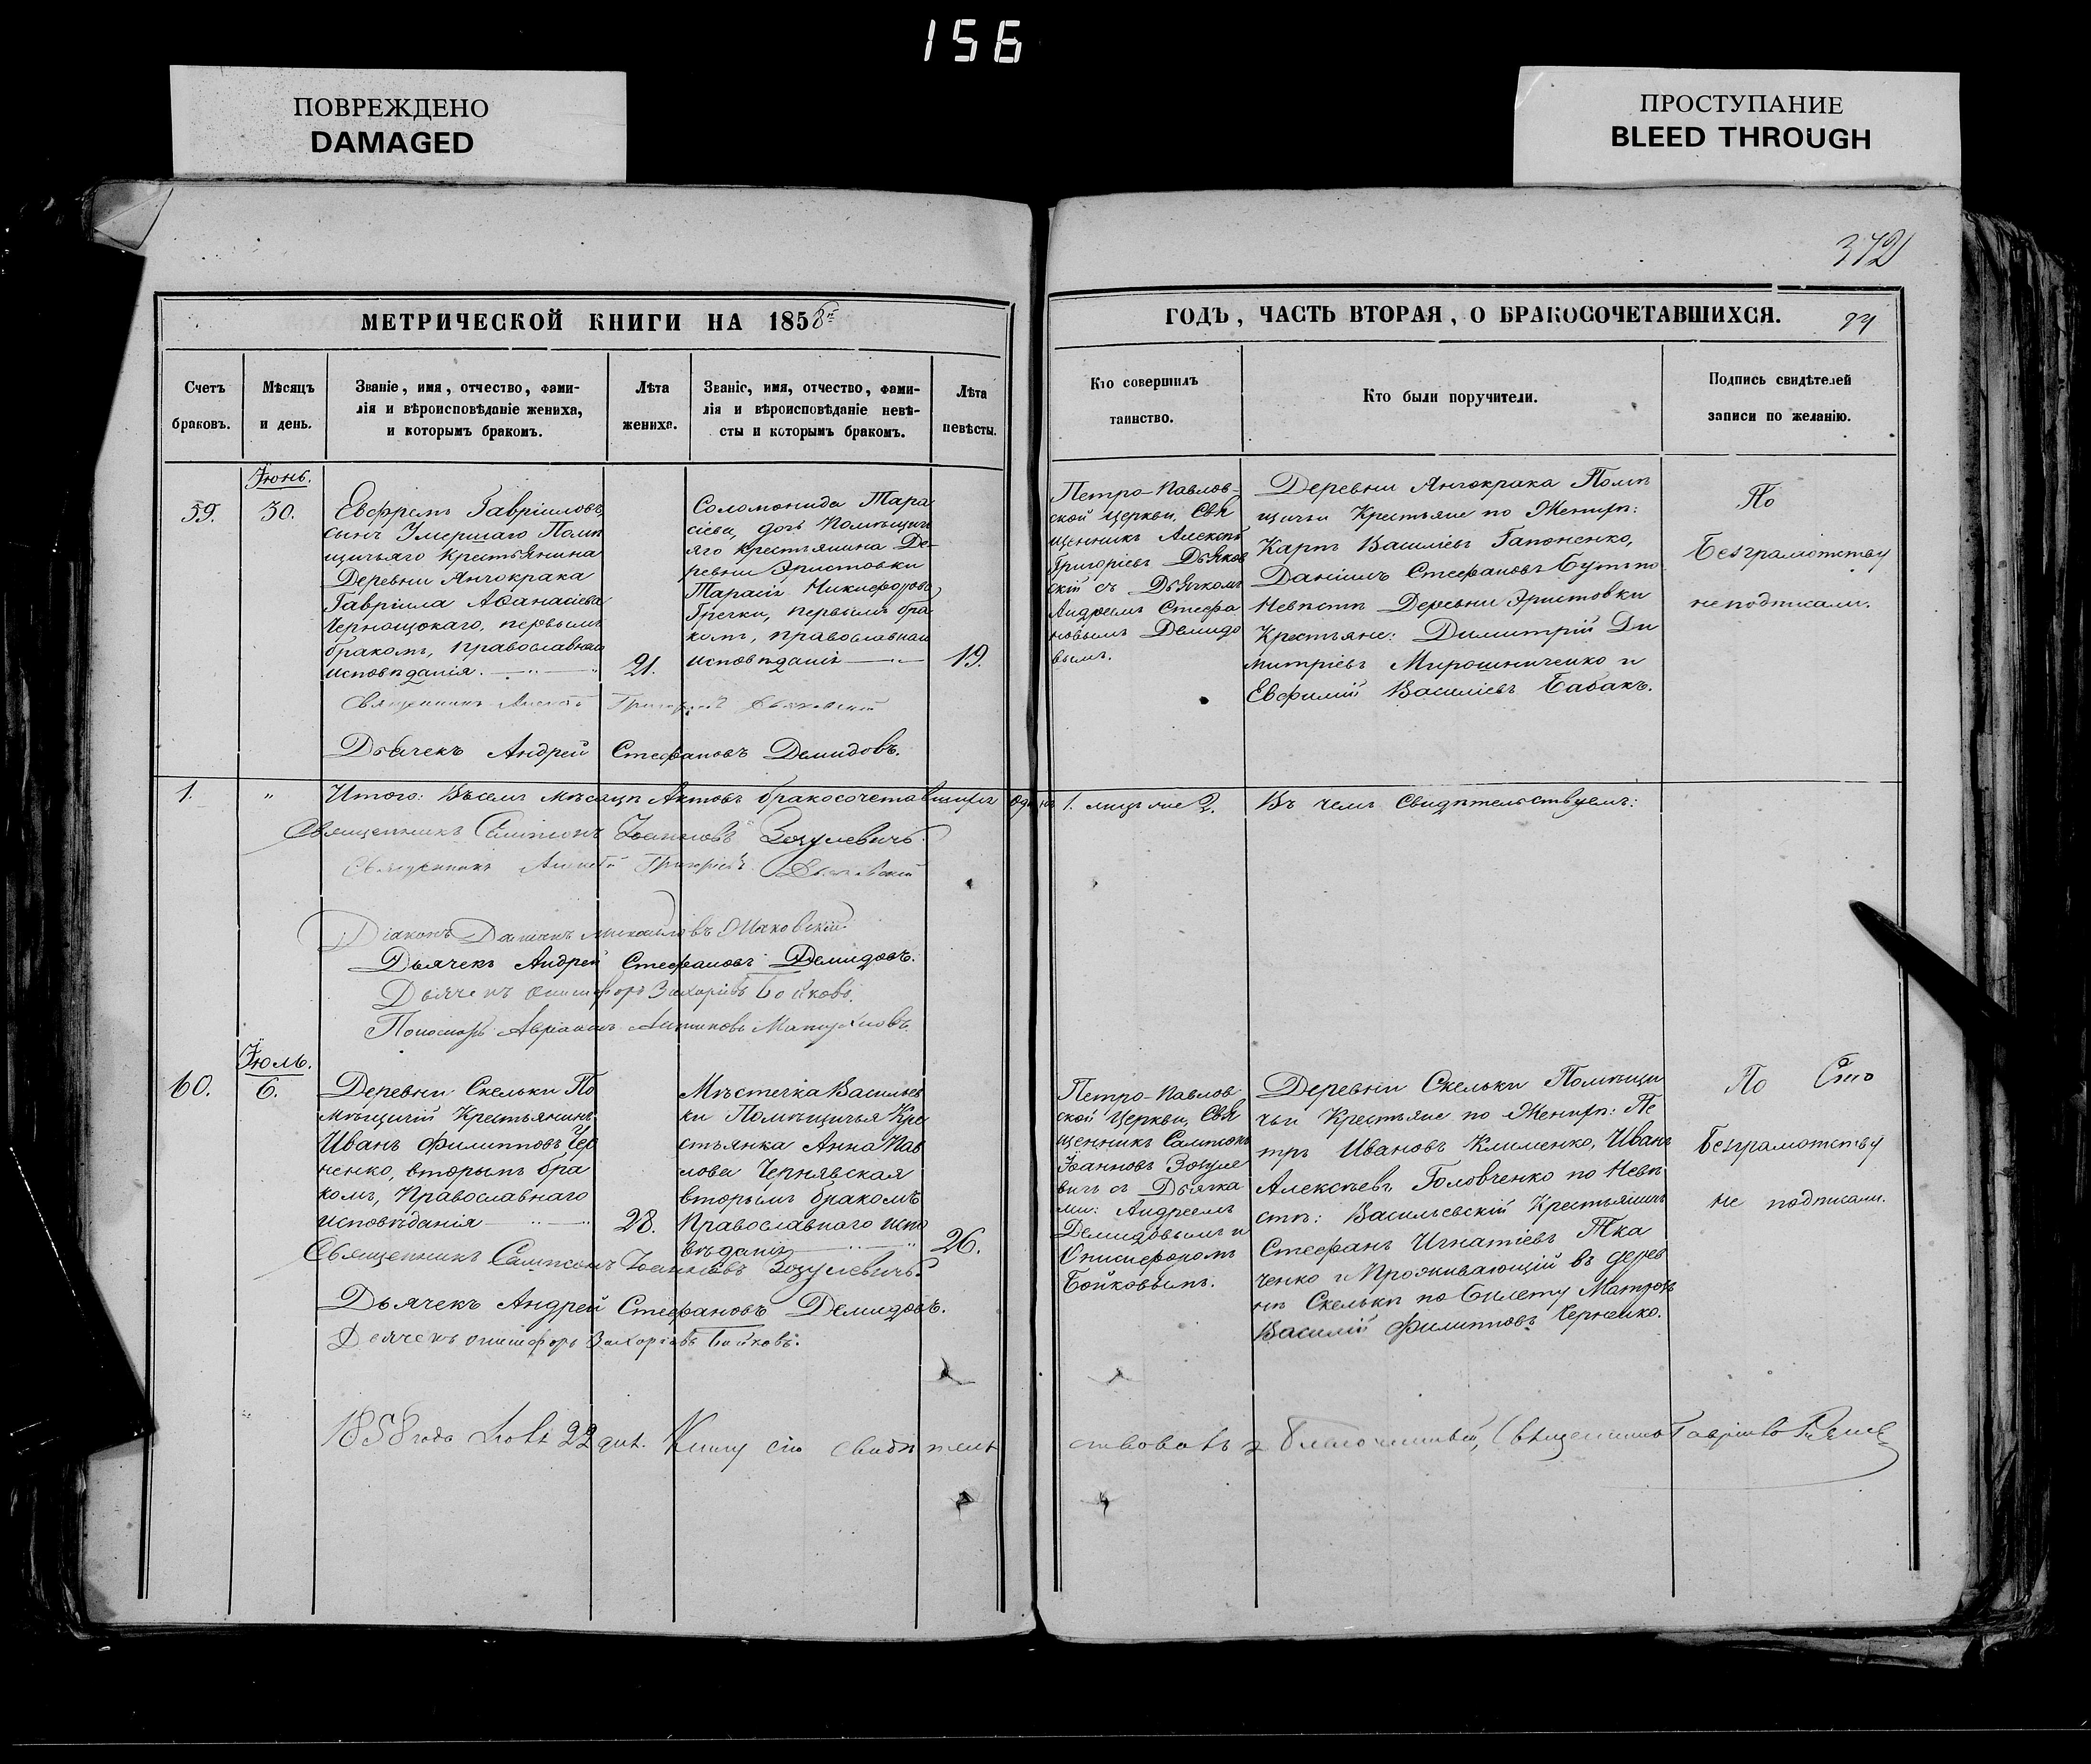 156
ПОВРЕЖДЕНО
DAMAGED
ПРОСТУПАНИЕ
BLEED THROUGH
372
МЕТРИЧЕСКОЙ КНИГИ НА 1858
Счетъ браковъ.
Мѣсяцъ и день.
Званіе, имя, отчество, фами-
лія и вѣроисповѣданіе жениха,
и которымъ бракомъ.
Лѣта жениха.
Званіе, имя, отчество, фами-
лія и вѣроисповѣданіе невѣ-
сты и которымъ бракомъ.
Лѣта невѣсты.
ГОДЪ, ЧАСТЬ ВТОРАЯ, О БРАКОСОЧЕТАВШИХСЯ.
Кто совершилъ
таинство.
Кто были поручители.
Подпись свидѣтелей
записи по желанію.
59.
Іюнь.
30.
Евфремъ Гавріиловъ
сынъ Умершаго Помѣ
щичьяго Крестьянина
Деревни Янчокрака
Гавріила Аѳанасіева
Чернощокаго, первымъ
бракомъ, православнаго
исповѣданія.
21.
Соломонида Тара
сіева, дочь Помѣщичь
яго крестьянина Де-
ревни Эристовки
Тарасія Никифорова
Гречки, первымъ бра
комъ, православнаго
исповѣданія
19.
Петро-Павлов-
ской церкви, Свя
щенникъ Алексѣй
Григоріевъ Дьяков
скій съ Дьячкомъ
Андреемъ Стефа
новымъ Демидо
вымъ.
Деревни Янчокрака Помѣ
щичьи Крестьяне по Женихѣ:
Карпъ Василіевъ Гапоненко,
Даніилъ Стефановъ по
Невѣстѣ Деревни Эристовки
Крестьяне: Димитрій Ди
митріевъ Мирошниченко и
Евфимій Василіевъ Бабакъ.
По
Безграмотству
неподписали.
Священникъ Алексѣй Григоріевъ Дьяковскій
Дьячекъ Андрей Стефановъ Демидовъ.
1.
Итого: Всемъ мѣсяцѣ Актовъ бракосочетавшихся одинъ 1. лицъ 2. Въ чемъ Свидѣтельствуемъ:
Священникъ Сампсонъ Іоанновъ Зозулевичъ.
Священникъ Алексѣй Григоріевъ Дьяковскій
Діаконъ Даміанъ Михайловъ
Дьячекъ Андрей Стефановъ Демидовъ.
Дьячекъ Онисифоръ Захоріевъ Бойковъ.
Пономарь Авраамъ
60.
Іюль.
6.
Деревни Скельки По
мѣщичій Крестьянинъ
Иванъ Филипповъ Чер
ненко, вторымъ бра
комъ, Православнаго
исповѣданія
28.
Мѣстечка Васильев
ки Помѣщичья Кре
стьянка Анна Пав
лова Чернявская
вторымъ бракомъ
Православнаго испо
вѣданія
26.
Петро-Павлов
ской Церкви, Свя
щенникъ Сампсонъ
Іоанновъ Зозуле
вичъ съ Дьячка
ми: Андреемъ
Демидовымъ и
Онисифоромъ
Бойковымъ.
Деревни Скельки Помѣщи
чьи Крестьяне по Женихѣ: Пе
тръ Ивановъ Клименко, Иванъ
Алексѣевъ Головченко по Невѣ
стѣ: Васильевскій Крестьянинъ
Стефанъ Игнатіевъ Тка
ченко и Проживающій въ дерев
нѣ Скельки по билету Матросъ
Василій Филипповъ Черненко.
По
Безграмотству
не подписали.
Священникъ Сампсонъ Іоанновъ Зозулевичъ.
Дьячекъ Андрей Стефановъ Демидовъ.
Дьячекъ Онисифоръ Захоріевъ Бойковъ.
1858 года 22 дня. Книгу сію свидѣтель
ствовалъ Благочинный, Священникъ Гавріилъ